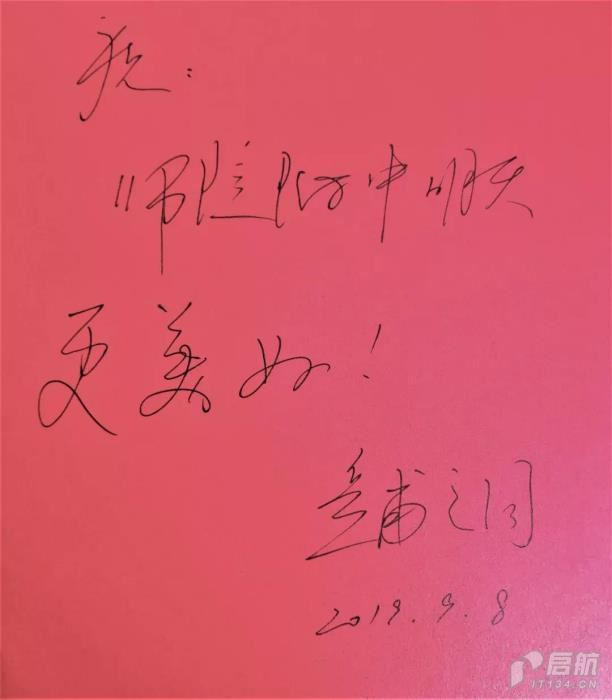 祝：
川师附中明天
更美好！
2019.9.8
启航
IT134.CN